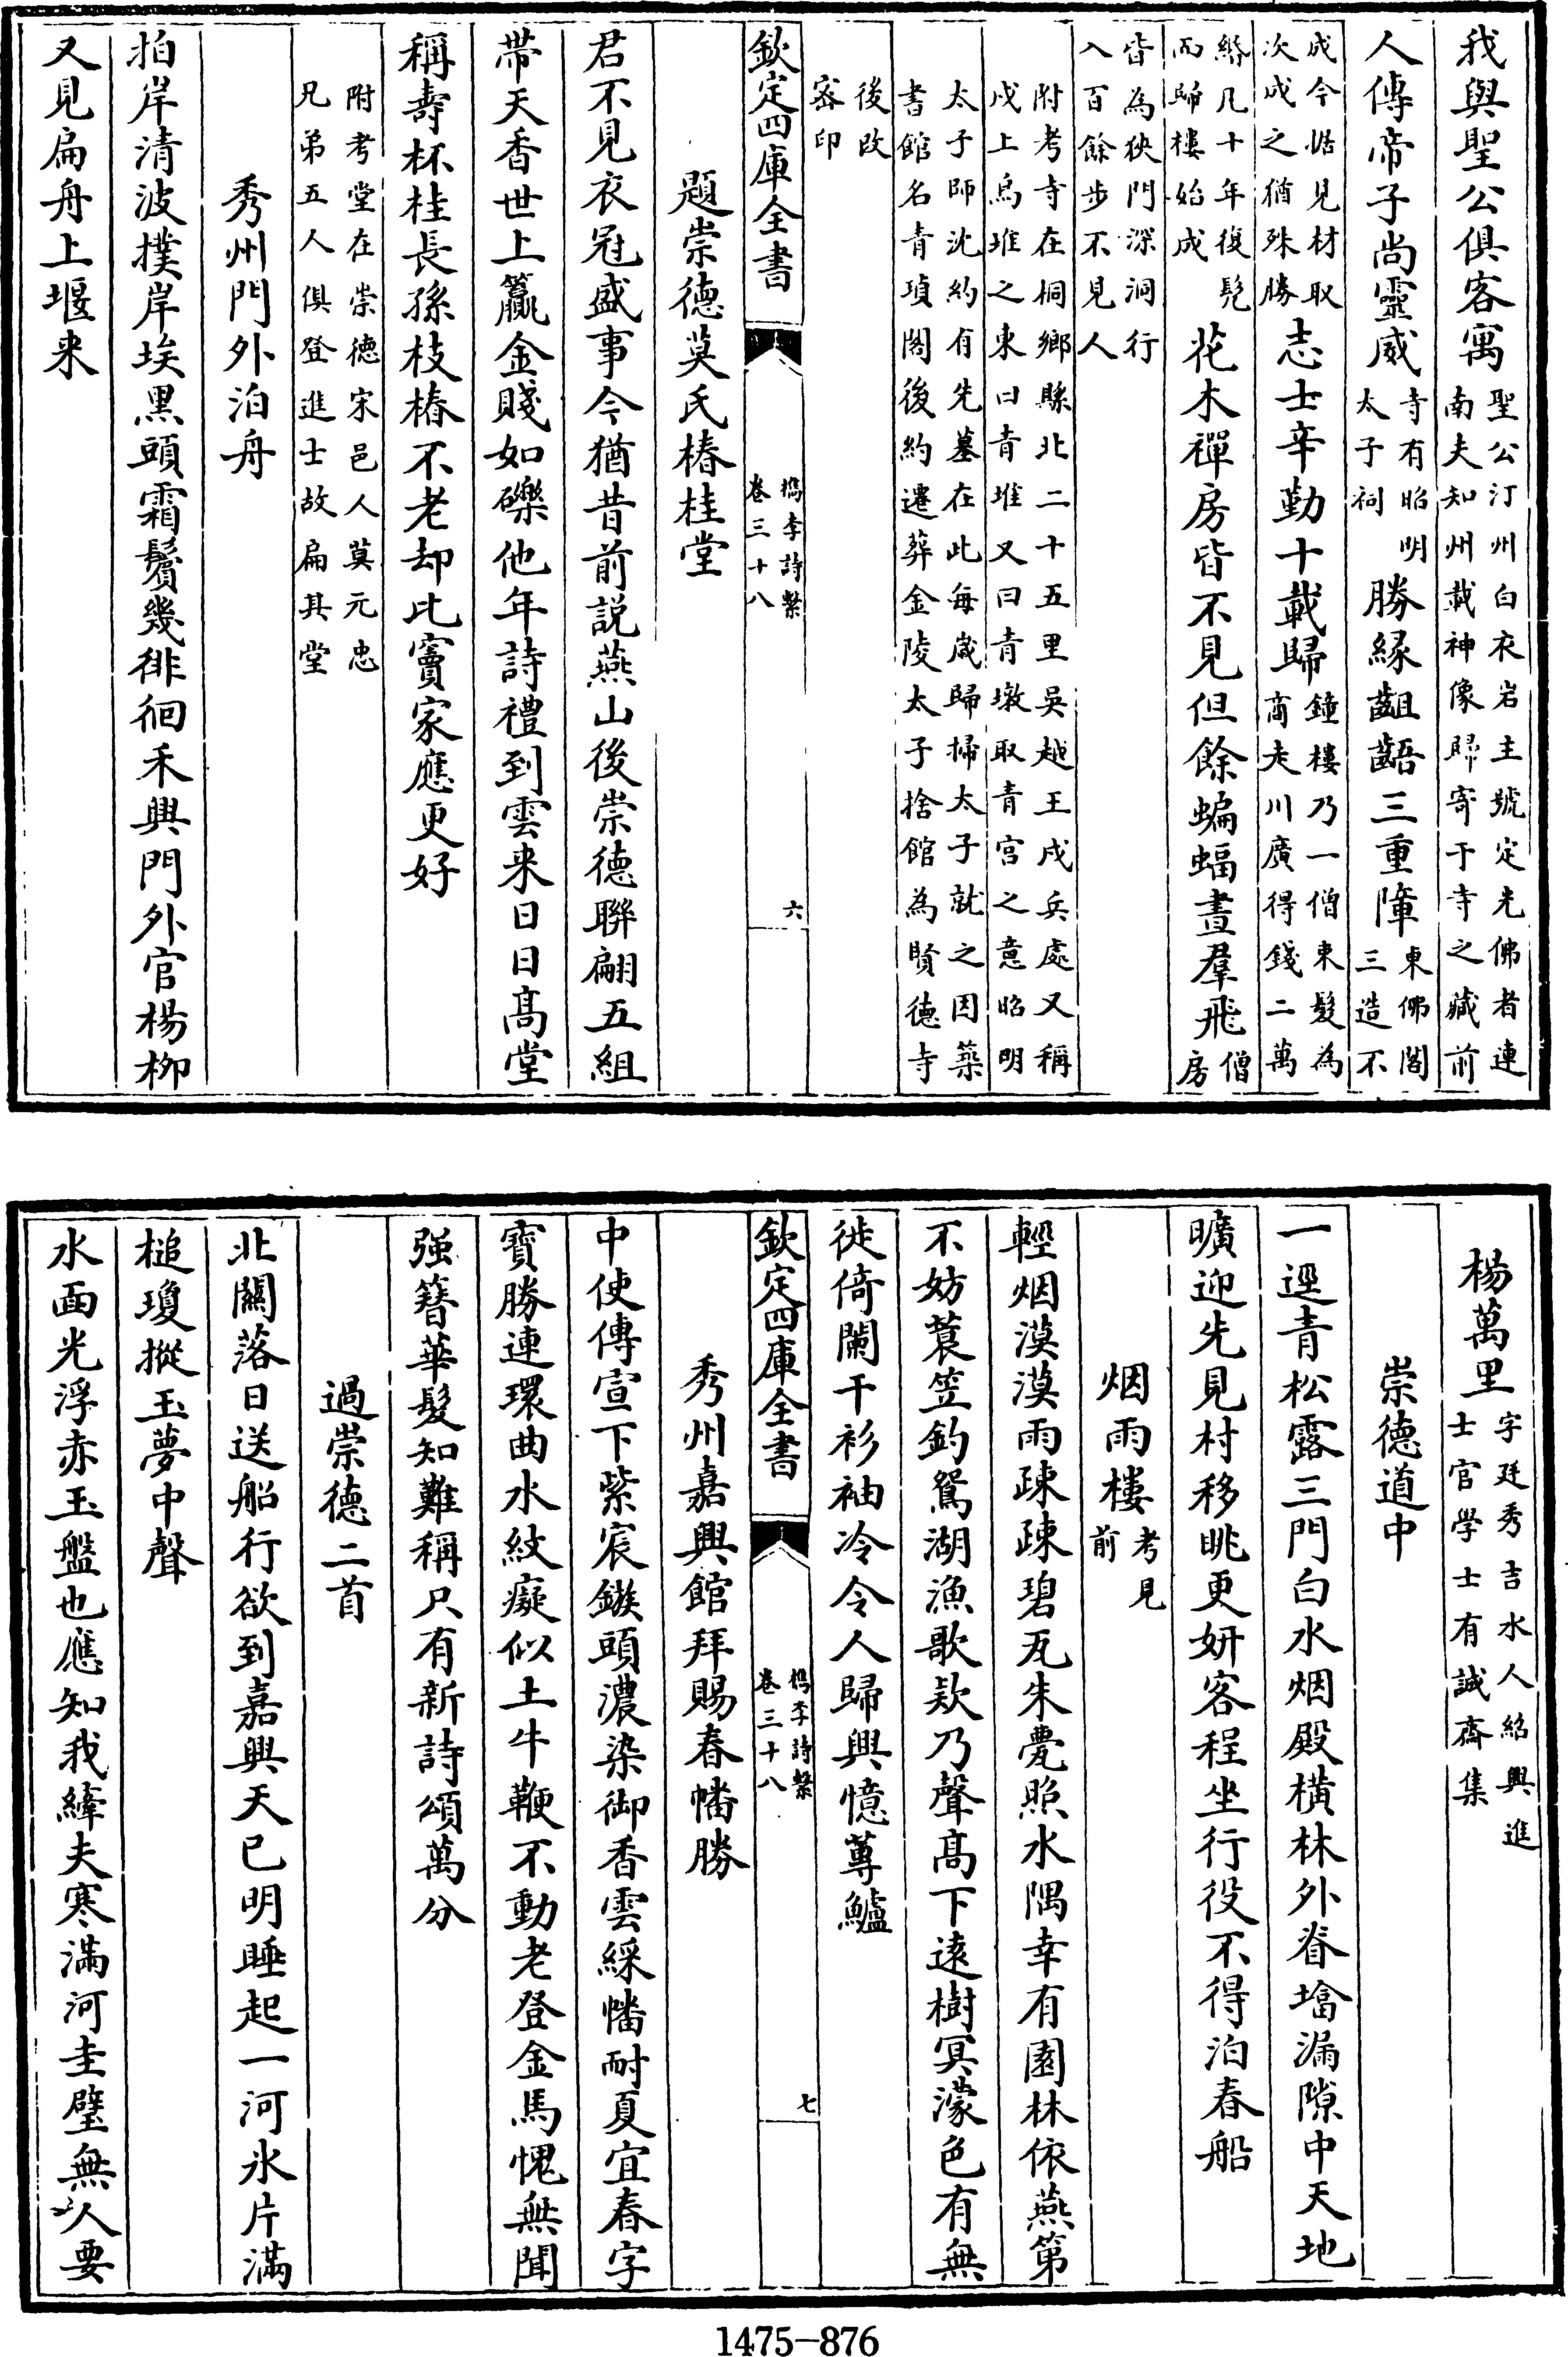 我與聖公俱客寓聖公汀州白衣岩主號定光佛者連南夫知州載神像歸寄于寺之藏前
人傳帝子尚靈威寺有昭明太子祠勝緣齟齬三重障東佛閣三造不
成今倨見材取次成之猶殊勝志士辛勤十載歸鐘樓乃一僧束髮為商走川廣得錢二萬
緡凡十年復髡而歸樓始成花木禪房皆不見但餘蝙蝠晝羣飛僧房
皆為狹門深洞行入百餘步不見人
附考寺在桐鄉縣北二十五里吳越王戍兵處又稱戍上烏堆之東曰青堆又曰青墩取青宫之意昭明
太子師沈約有先墓在此每歲歸掃太子就之因築書館名青瑣閣後約遷葬金陵太子捨館為賢德寺
後改密印
欽定四庫全書
檇李詩繫
卷三十八
六
題崇德莫氏椿桂堂
君不見衣冠盛事今猶昔前説燕山後崇德聯翩五組
帶天香世上籯金賤如礫他年詩禮到雲来日日髙堂
稱壽杯桂長孫枝椿不老却比竇家應更好
附考堂在崇德宋邑人莫元忠兄弟五人俱登進士故扁其堂
秀州門外泊舟
拍岸清波撲岸埃黒頭霜鬢幾徘徊禾興門外官楊栁
又見扁舟上堰来
楊萬里字廷秀吉水人紹興進士官學士有誠齋集
崇德道中
一逕青松露三門白水烟殿横林外脊墖漏隙中天地
曠迎先見村移眺更妍客程坐行役不得泊春船
烟雨樓考見前
輕烟漠漠雨疎疎碧瓦朱甍照水隅幸有園林依燕第
不妨蓑笠釣鴛湖漁歌欵乃聲髙下遠樹冥濛色有無
徙倚闌干衫袖冷令人歸興憶蓴鱸
欽定四庫全書
檇李詩繫
卷三十八
七
秀州嘉興館拜賜春幡勝
中使傳宣下紫宸鏃頭濃染御香雲綵幡耐夏宜春字
寶勝連環曲水紋癡似土牛鞭不動老登金馬愧無聞
强簪華髮知難稱只有新詩頌萬分
過崇德二首
北闗落日送船行欲到嘉興天已明睡起一河氷片滿
槌瓊摐玉夢中聲
水面光浮赤玉盤也應知我縴夫寒滿河圭璧無人要
1475-876